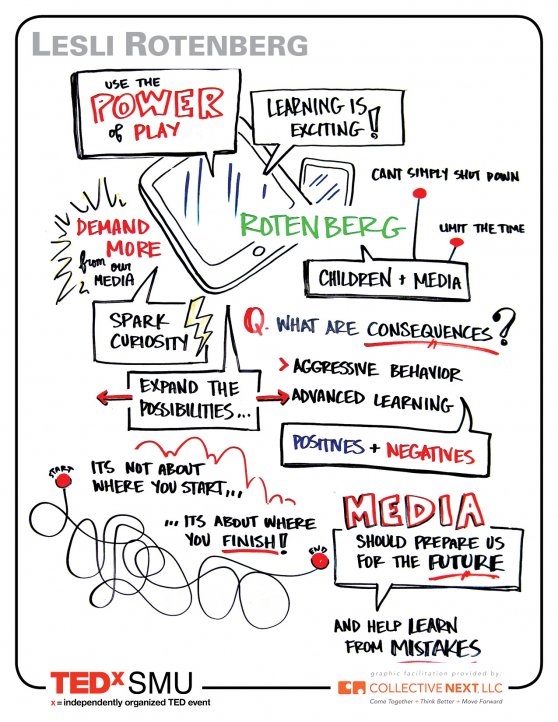 LESLI ROTENBERG
USE THE
POWER
of PLAY
LEARNING IS
EXCITING!
CANT SIMPLY SHUT DOWN
LIMIT THE TIME
ROTENBERG
CHILDREN + MEDIA
DEMAND
MORE
from our
MEDIA
SPARK
CURIOSITY
Q. WHAT ARE CONSEQUENCES?
> AGGRESSIVE BEHAVIOR
ADVANCED LEARNING
POSITIVES + NEGATIVES
EXPAND THE
POSSIBILITIES...
START
ITS NOT ABOUT
WHERE YOU START,...
...ITS ABOUT WHERE
YOU FINISH!
END
MEDIA
SHOULD PREPARE US
FOR THE FUTURE
AND HELP LEARN
FROM MISTAKES
TEDxSMU
x = independently organized TED event
graphic facilitation provided by:
COLLECTIVE NEXT, LLC
Come Together + Think Better + Move Forward